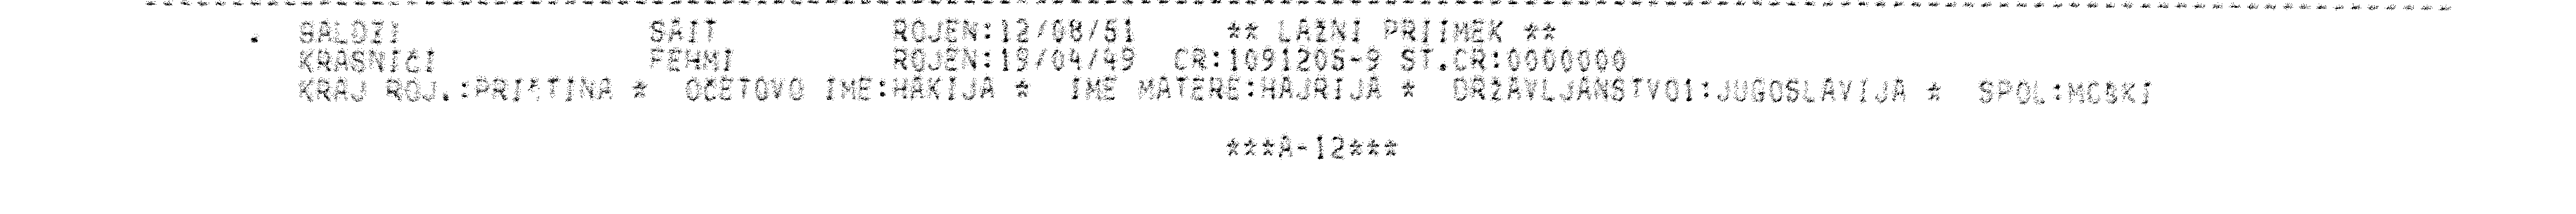 . SALDZI SAIT ROJEN:12/08/51 ** LAŽNI PRIIMEK **
KRASNIČI FEHMI ROJEN:19/04/49 CR:1091205-9 ST.CR:0000000
KRAJ ROJ.:PRIŠTINA * OČETOVO IME:HAKIJA * IME MATERE:HAJRIJA * DRŽAVLJANSTVO1:JUGOSLAVIJA * SPOL:MOŠKI
***A-12***